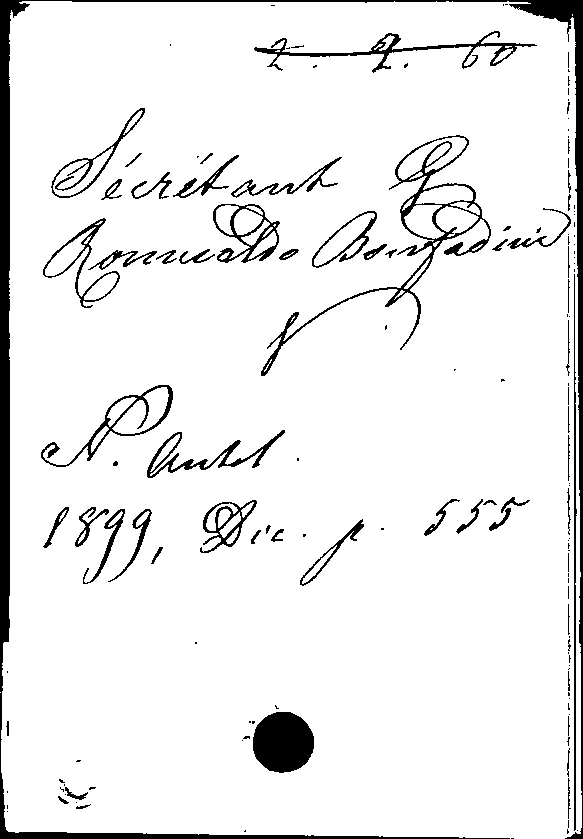 2. 2. 60
Sécrétant G
Romualdo Bonfadini
N. Antol.
1899, Dic. p. 555